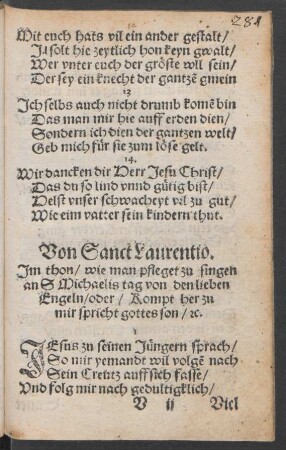 281
12
Mit euch hats vil ein ander gestalt/
Jr solt hie zeytlich hon keyn gwalt/
Wer vnter euch der gröste wil sein/
Der sey ein knecht der gantzẽ gmein
13
Ich selbs auch nicht drumb komẽ bin
Das man mir hie auff erden dien/
Sondern ich dien der gantzen welt/
Geb mich für sie zum löse gelt.
14.
Wir dancken dir Herr Jesu Christ/
Das du so lind vnnd gütig bist/
Helst vnser schwacheyt vil zu gut/
Wie eim vatter sein kindern thut.
Von Sanct Laurentio.
Im thon/ wie man pfleget zu singen
an S Michaelis tag von den lieben
Engeln/ oder/ Kompt her zu
mir spricht gottes son/ ꝛc.
1
JEsus zu seinen Jüngern sprach/
So mir yemandt wil volgẽ nach
Sein Creütz auff sich fasse/
Vnd folg mir nach gedultigklich/
V ij Viel